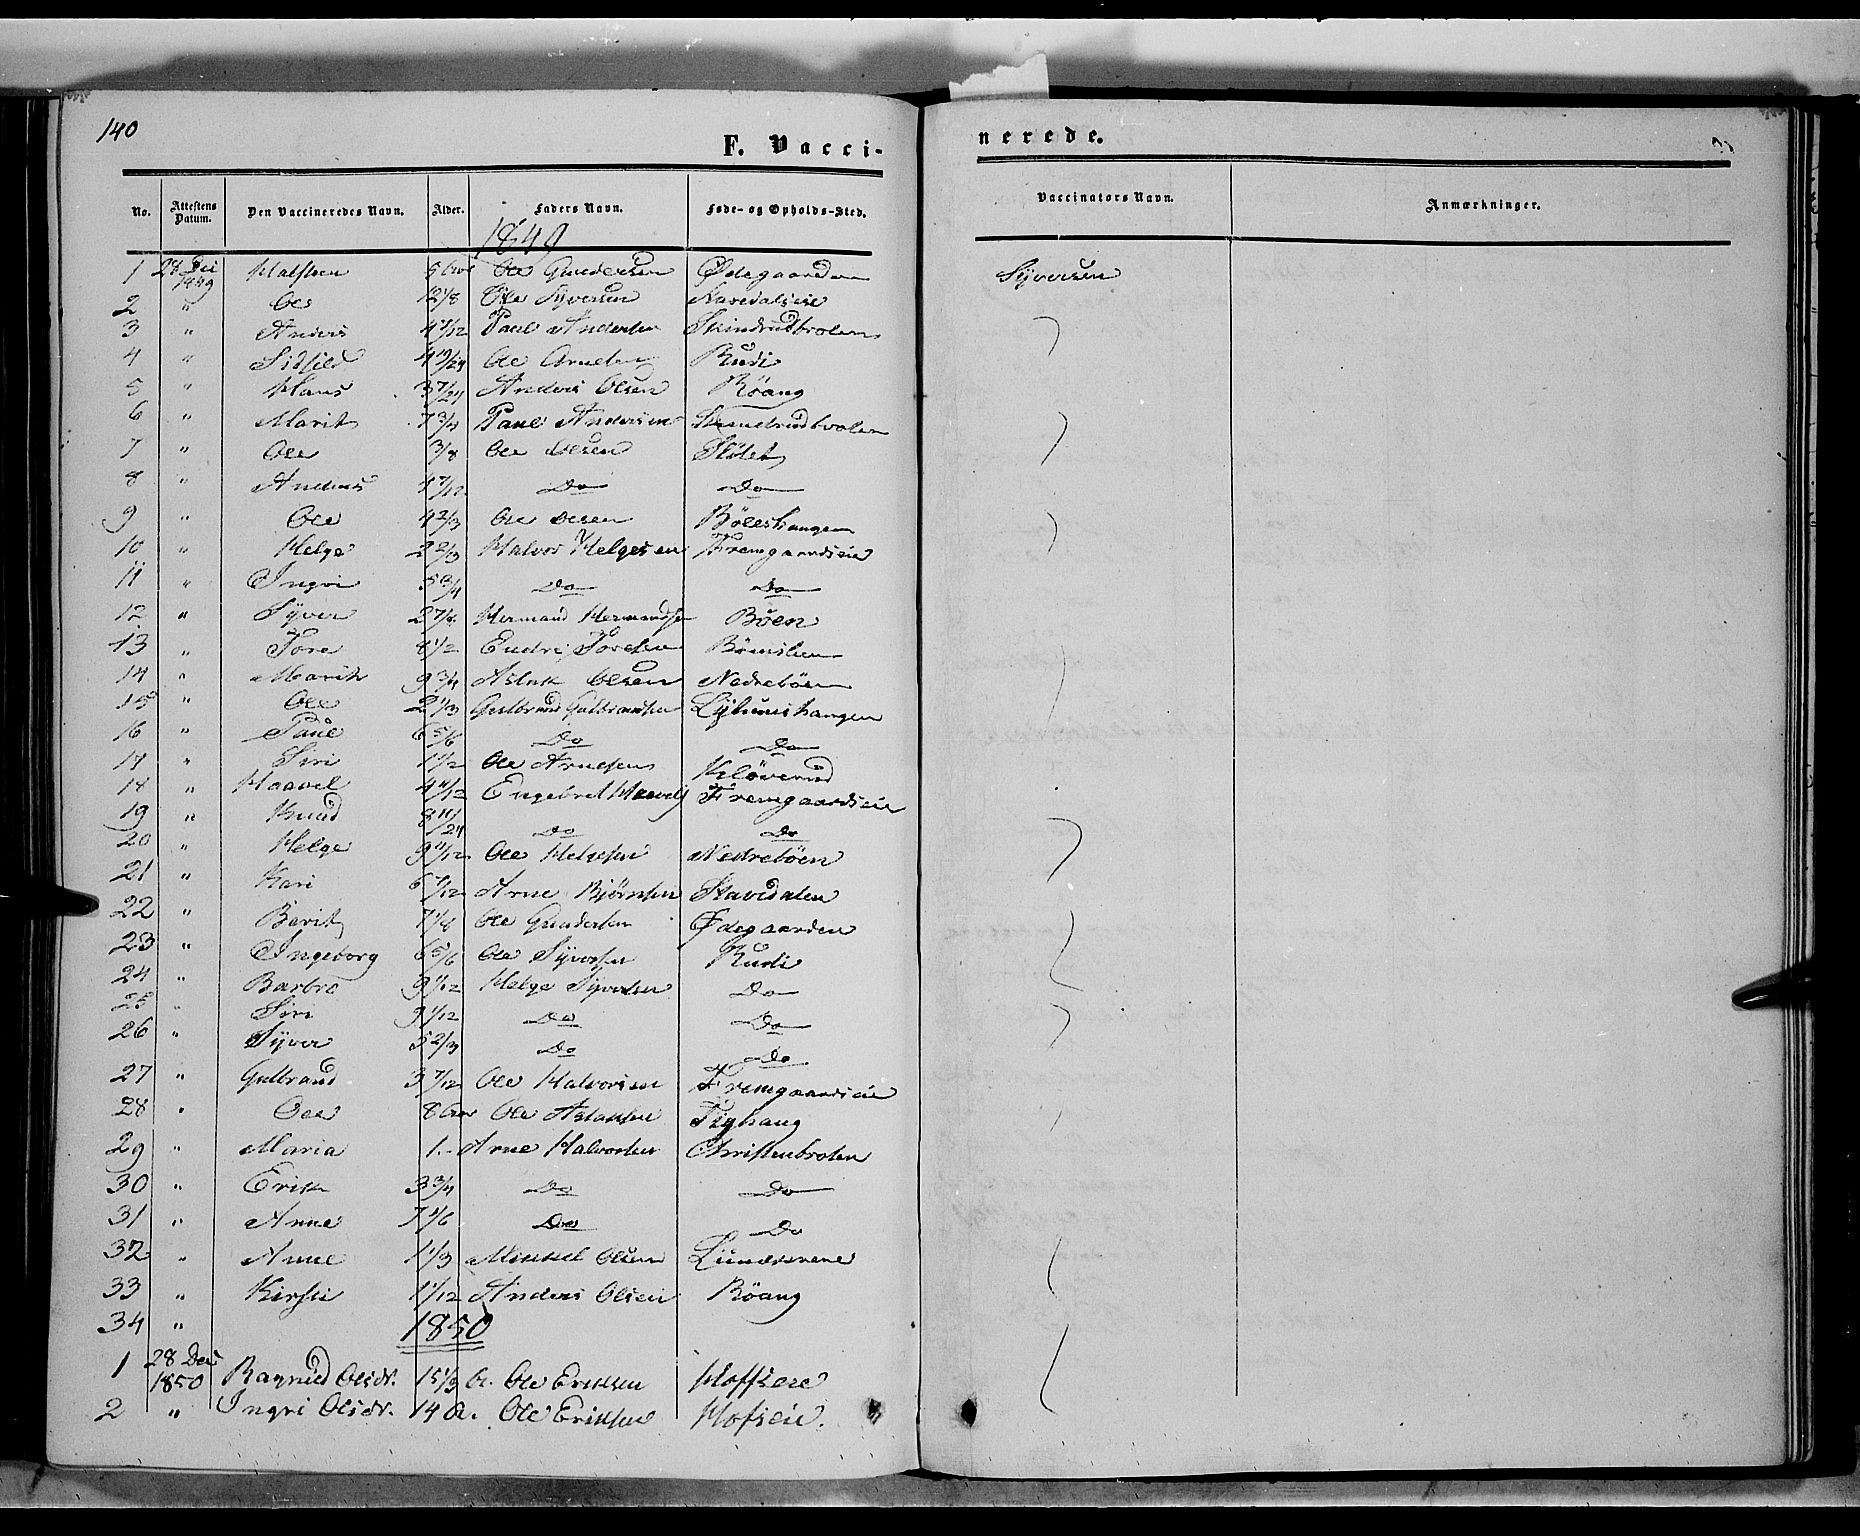 140
F. Vacci-
nerede.
No. Attestens Datum. Den Vaccineredes Navn. Alder. Faders Navn. Føde- og Opholds-Sted. Vaccinators Navn. Anmærkninger.
1849
1 28 Dec 1849 Halsten 5 Aar Ole Gundersen Ødegaarden Syversen
2 " Ole 12 1/8 Ole Syversen
3 " Anders 4 Paul Andersen
4 " Sidsel 4 19/24 Ole Arnesen Rudi
5 " Hans 3 7/24 Anders Olsen Röang
6 " Marit 7 3/4 Paul Andersen
7 " Ole 3/8 Ole Olsen Slölet
8 " Anders 4 7/12 Do Do
9 " Ole 4 2/3 Ole Olsen Böleshaugen
10 " Helge 2 2/3 Halvor Helgesen Fremgaardseie
11 " Ingri 5 3/4 Do Do
12 " Syver 2 7/8 Hermand Hermandsen Böen
13 " Tore 8 1/2 Endre Toresen
14 " Marit 9 3/4 Aslak Olsen Nedreböen
15 " Ole 2 1/3 Gulbrand Gulbrandsen
16 " Paul 6 5/6 Do Do
17 " Siri 1 1/2 Ole Arnesen Klöverud
18 " Haavel 4 11/12 Engebret Haavels Fremgaardseie
19 " Knud 8 11/24 Do Do
20 " Helge 9 11/12 Ole Helgesen Nedreböen
21 " Kari 6 7/12 Arne Bjørnsen Stavedalen
22 " Berit 7 1/8 Ole Gundersen Ødegaarden
23 " Ingeborg 6 5/6 Ole Syversen Rudi
24 " Barbro 9 1/12 Helge Syversen Do
25 " Siri 9 1/12 Do Do
26 " Syver 5 2/3 Do Do
27 " Gulbrand 3 7/12 Ole Halvorsen Fremgaardseie
28 " Ole 8 Aar Ole Aslaksen Tyhaug
29 " Maria 1.- Arne Halvorsen Christenbroten
30 " Erik 3 3/4 Do Do
31 " Anne 7 1/6 Do Do
32 " Anne 1 1/3 Mikkel Olsen
33 " Kirsti 1 1/12 Anders Olsen Röang
34 "
1850
1 28 Dec 1850 Ragnild Olsdr. 15 1/3 A. Ole Eriksen
2 " Ingri Olsdr. 14 A. Ole Eriksen Hofseie.